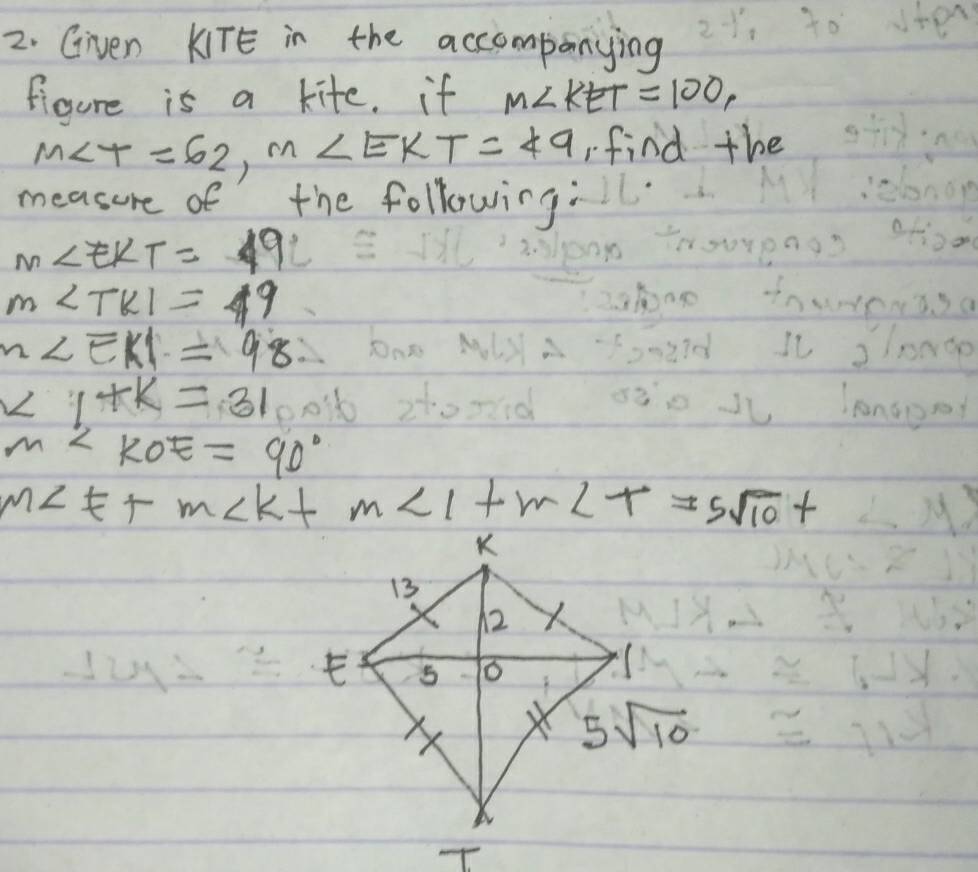 2. Given KITE in the accompanying
figure is a kite. if m∠KET = 100,
m∠T = 62, m∠EKT = 49, find the
measure of the following:
m∠EKT = 49
m∠TKI = 49
m∠EKI = 98
∠ ITK = 31
m∠ KOE = 90°
m∠E + m∠K + m∠I + m∠T = 5√10 +
K
13
12
E
5
O
I
5√10
T